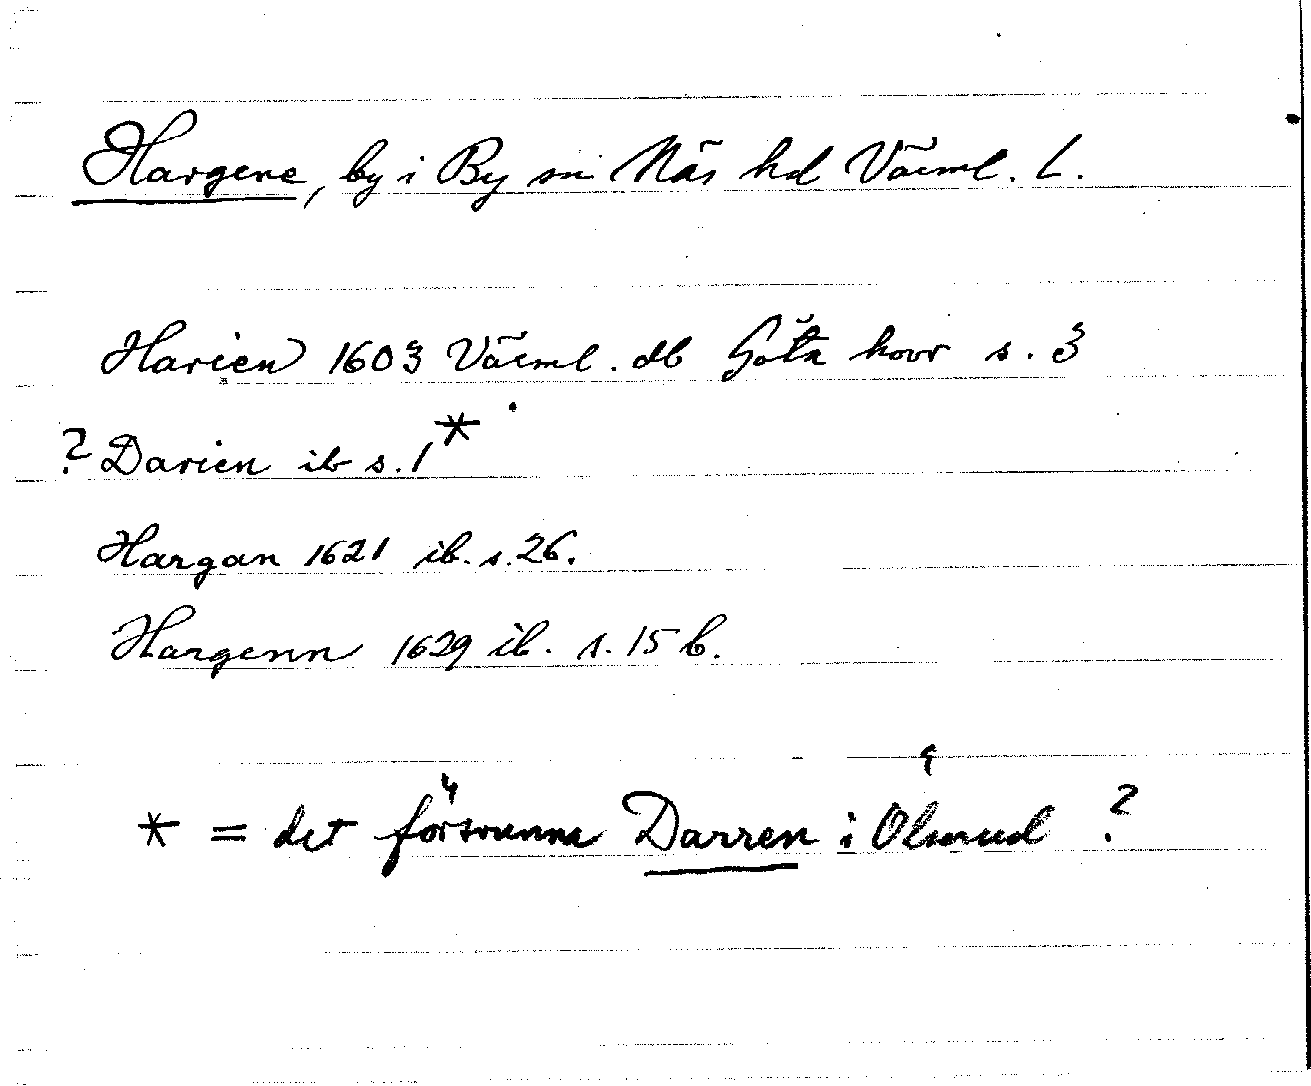 Hargene, by i By sn Näs hd Värml. L.
Harien 1603 Värml. db Göta hovr s. 3
? Darien ib s. 1*
Hargan 1621 ib. s. 26.
Hargenn 1629 ib. s. 15 b.
* = det försvunna Darren i Olserud ?